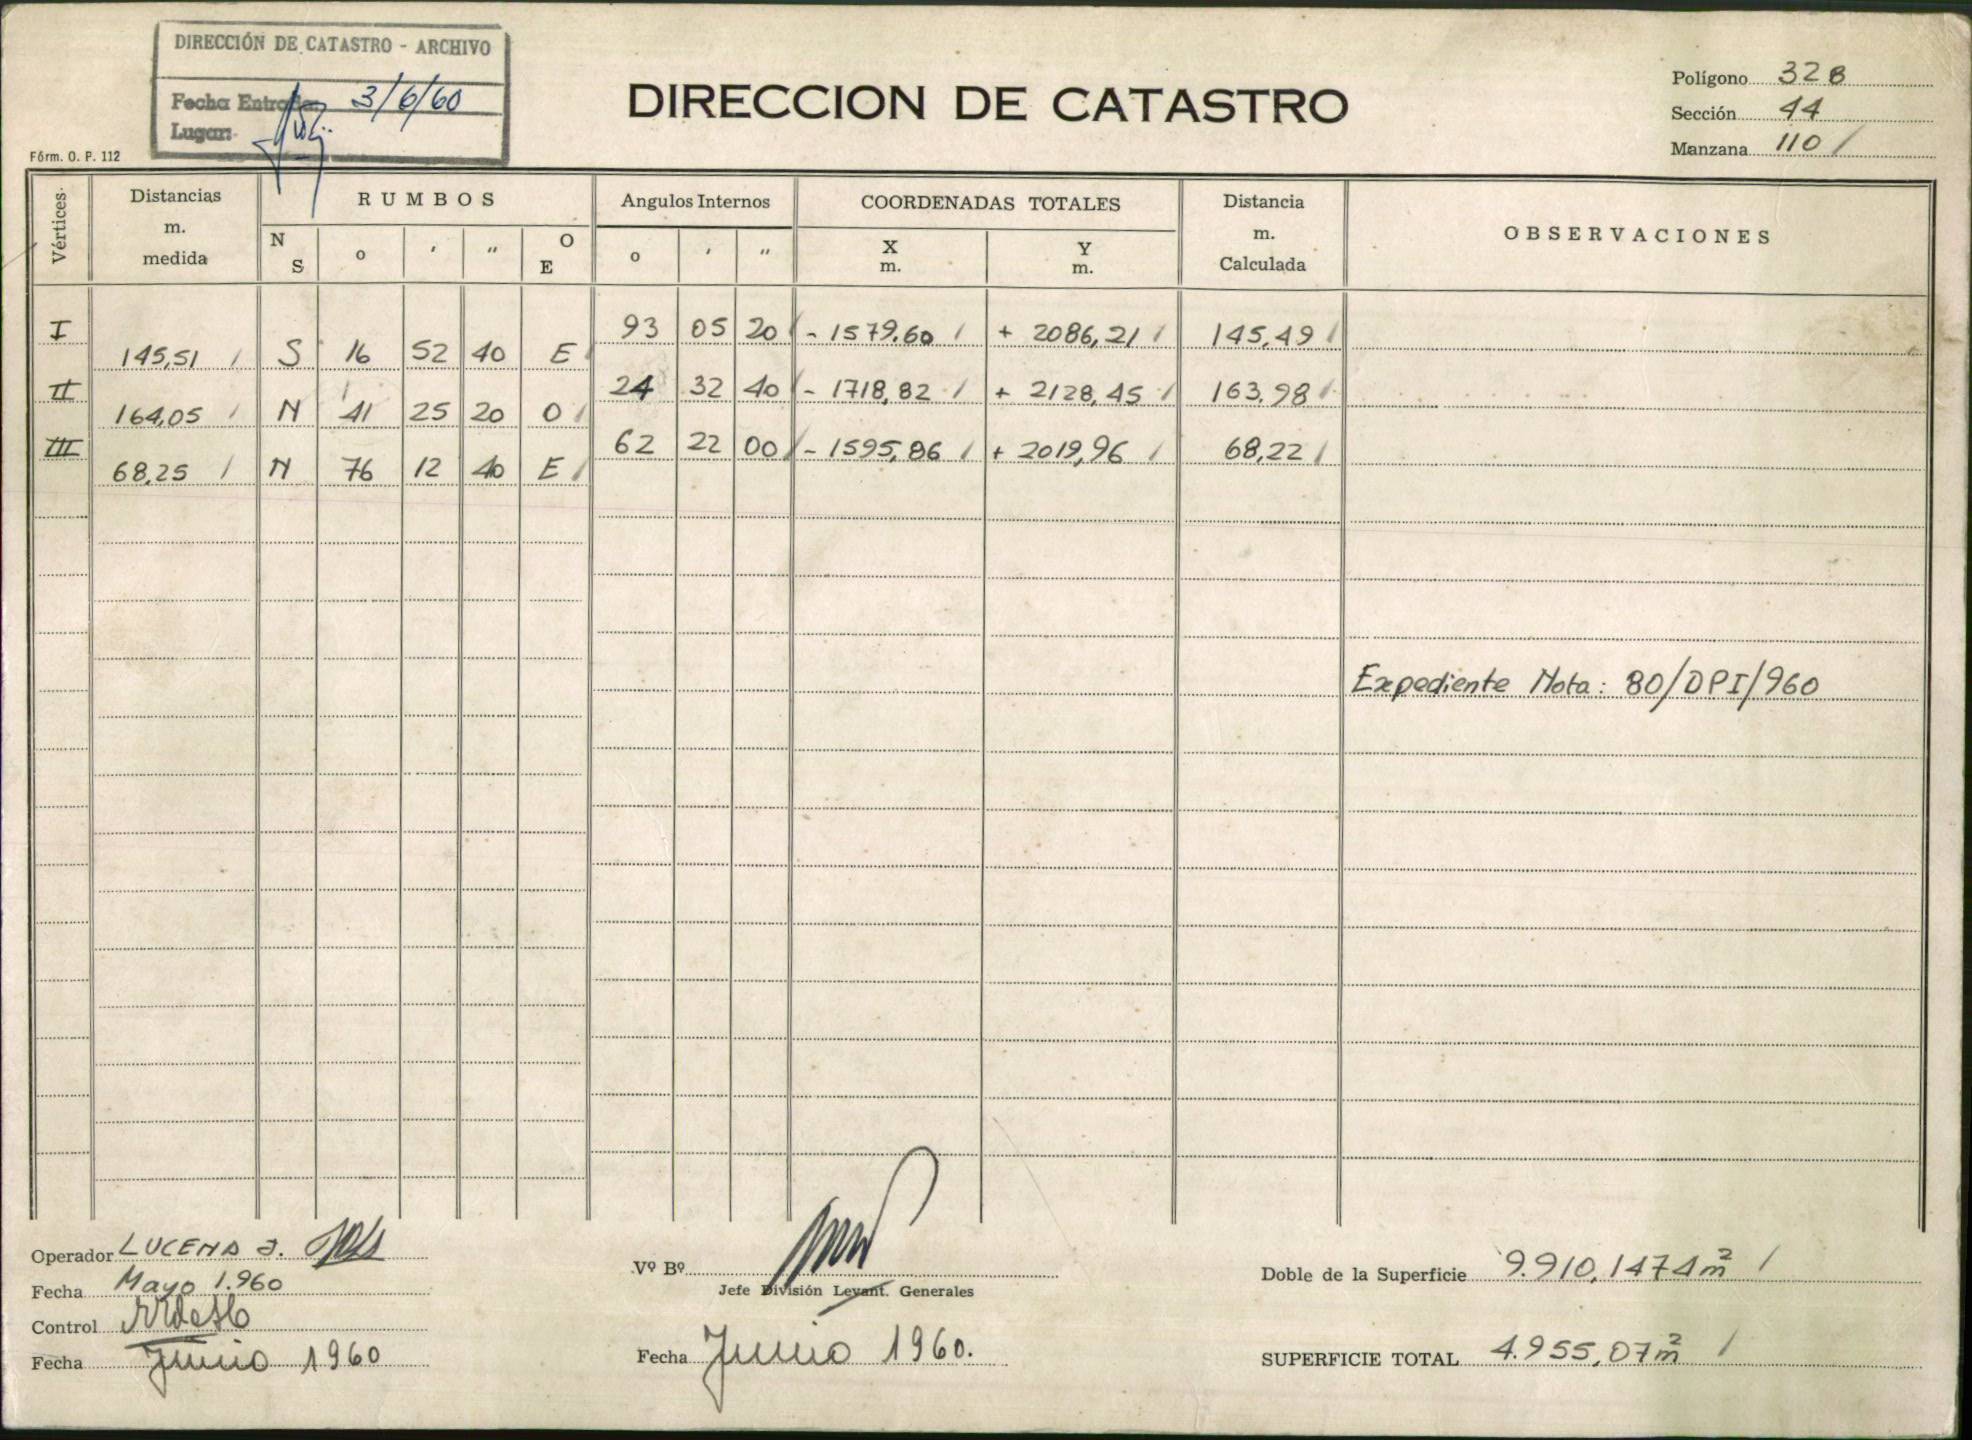 DIRECCIÓN DE CATASTRO - ARCHIVO
Fecha Entrada: 3/6/60
Lugar:
Fórm. O. P. 112
DIRECCION DE CATASTRO
Polígono 328
Sección 44
Manzana 110 /
Vértices. Distancias m. medida RUMBOS Angulos Internos COORDENADAS TOTALES Distancia m. Calculada OBSERVACIONES
N S o ' " O E o ' " X m. Y m.
I 93 05 20 / - 1579,60 / + 2086,21 / 145,49 /
145,51 / S 16 52 40 E /
II 24 32 40 / - 1718,82 / + 2128,45 / 163,98 /
164,05 / N 41 25 20 O /
III 62 22 00 / - 1595,86 / + 2019,96 / 68,22 /
68,25 / N 76 12 40 E /
Expediente Nota: 80/DPI/960
Operador LUCENA J.
Fecha Mayo 1.960
Control
Fecha Junio 1960
Vº Bº
Jefe División Levant. Generales
Fecha Junio 1960.
Doble de la Superficie 9.910,1474 m² /
SUPERFICIE TOTAL 4.955,07 m² /